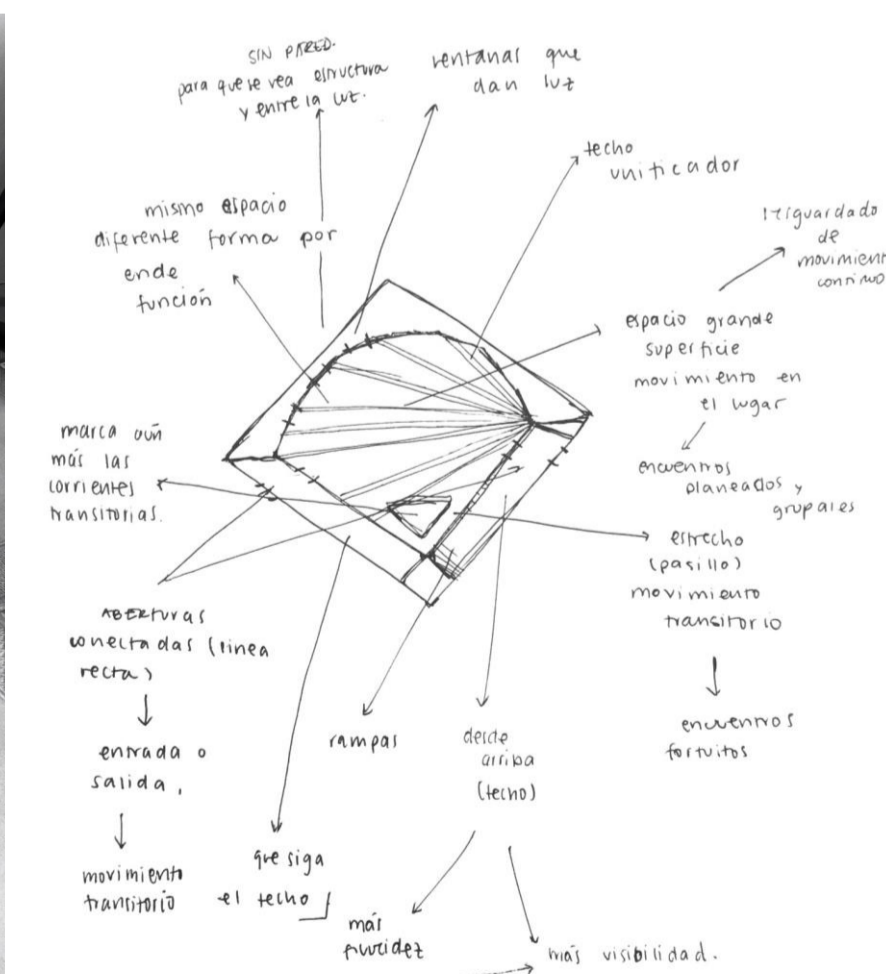 SIN PARED.
para que se vea estructura
y entre la luz.
ventanas que
dan luz
techo
unificador
mismo espacio
diferente forma por
ende
función
resguardado
de
movimient
continuo
espacio grande
superficie
movimiento en
el lugar
encuentros
planeados y
grupales
marca aún
más las
corrientes
transitorias.
estrecho
(pasillo)
movimiento
transitorio
encuentros
fortuitos
ABERTURAS
conectadas (linea
recta)
entrada o
salida.
movimiento
transitorio
rampas
desde
arriba
(techo)
que siga
el techo
más
fluidez
más visibilidad.